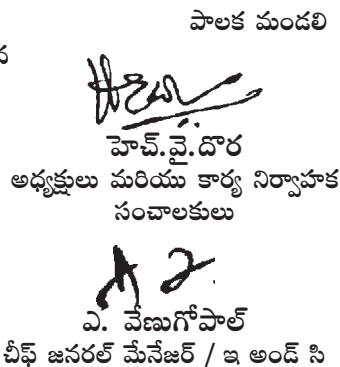 పాలక మండలి
హెచ్.వై.దొర
అధ్యక్షులు మరియు కార్య నిర్వాహక
సంచాలకులు
ఎ. వేణుగోపాల్
చీఫ్ జనరల్ మేనేజర్ / ఇ అండ్ సి